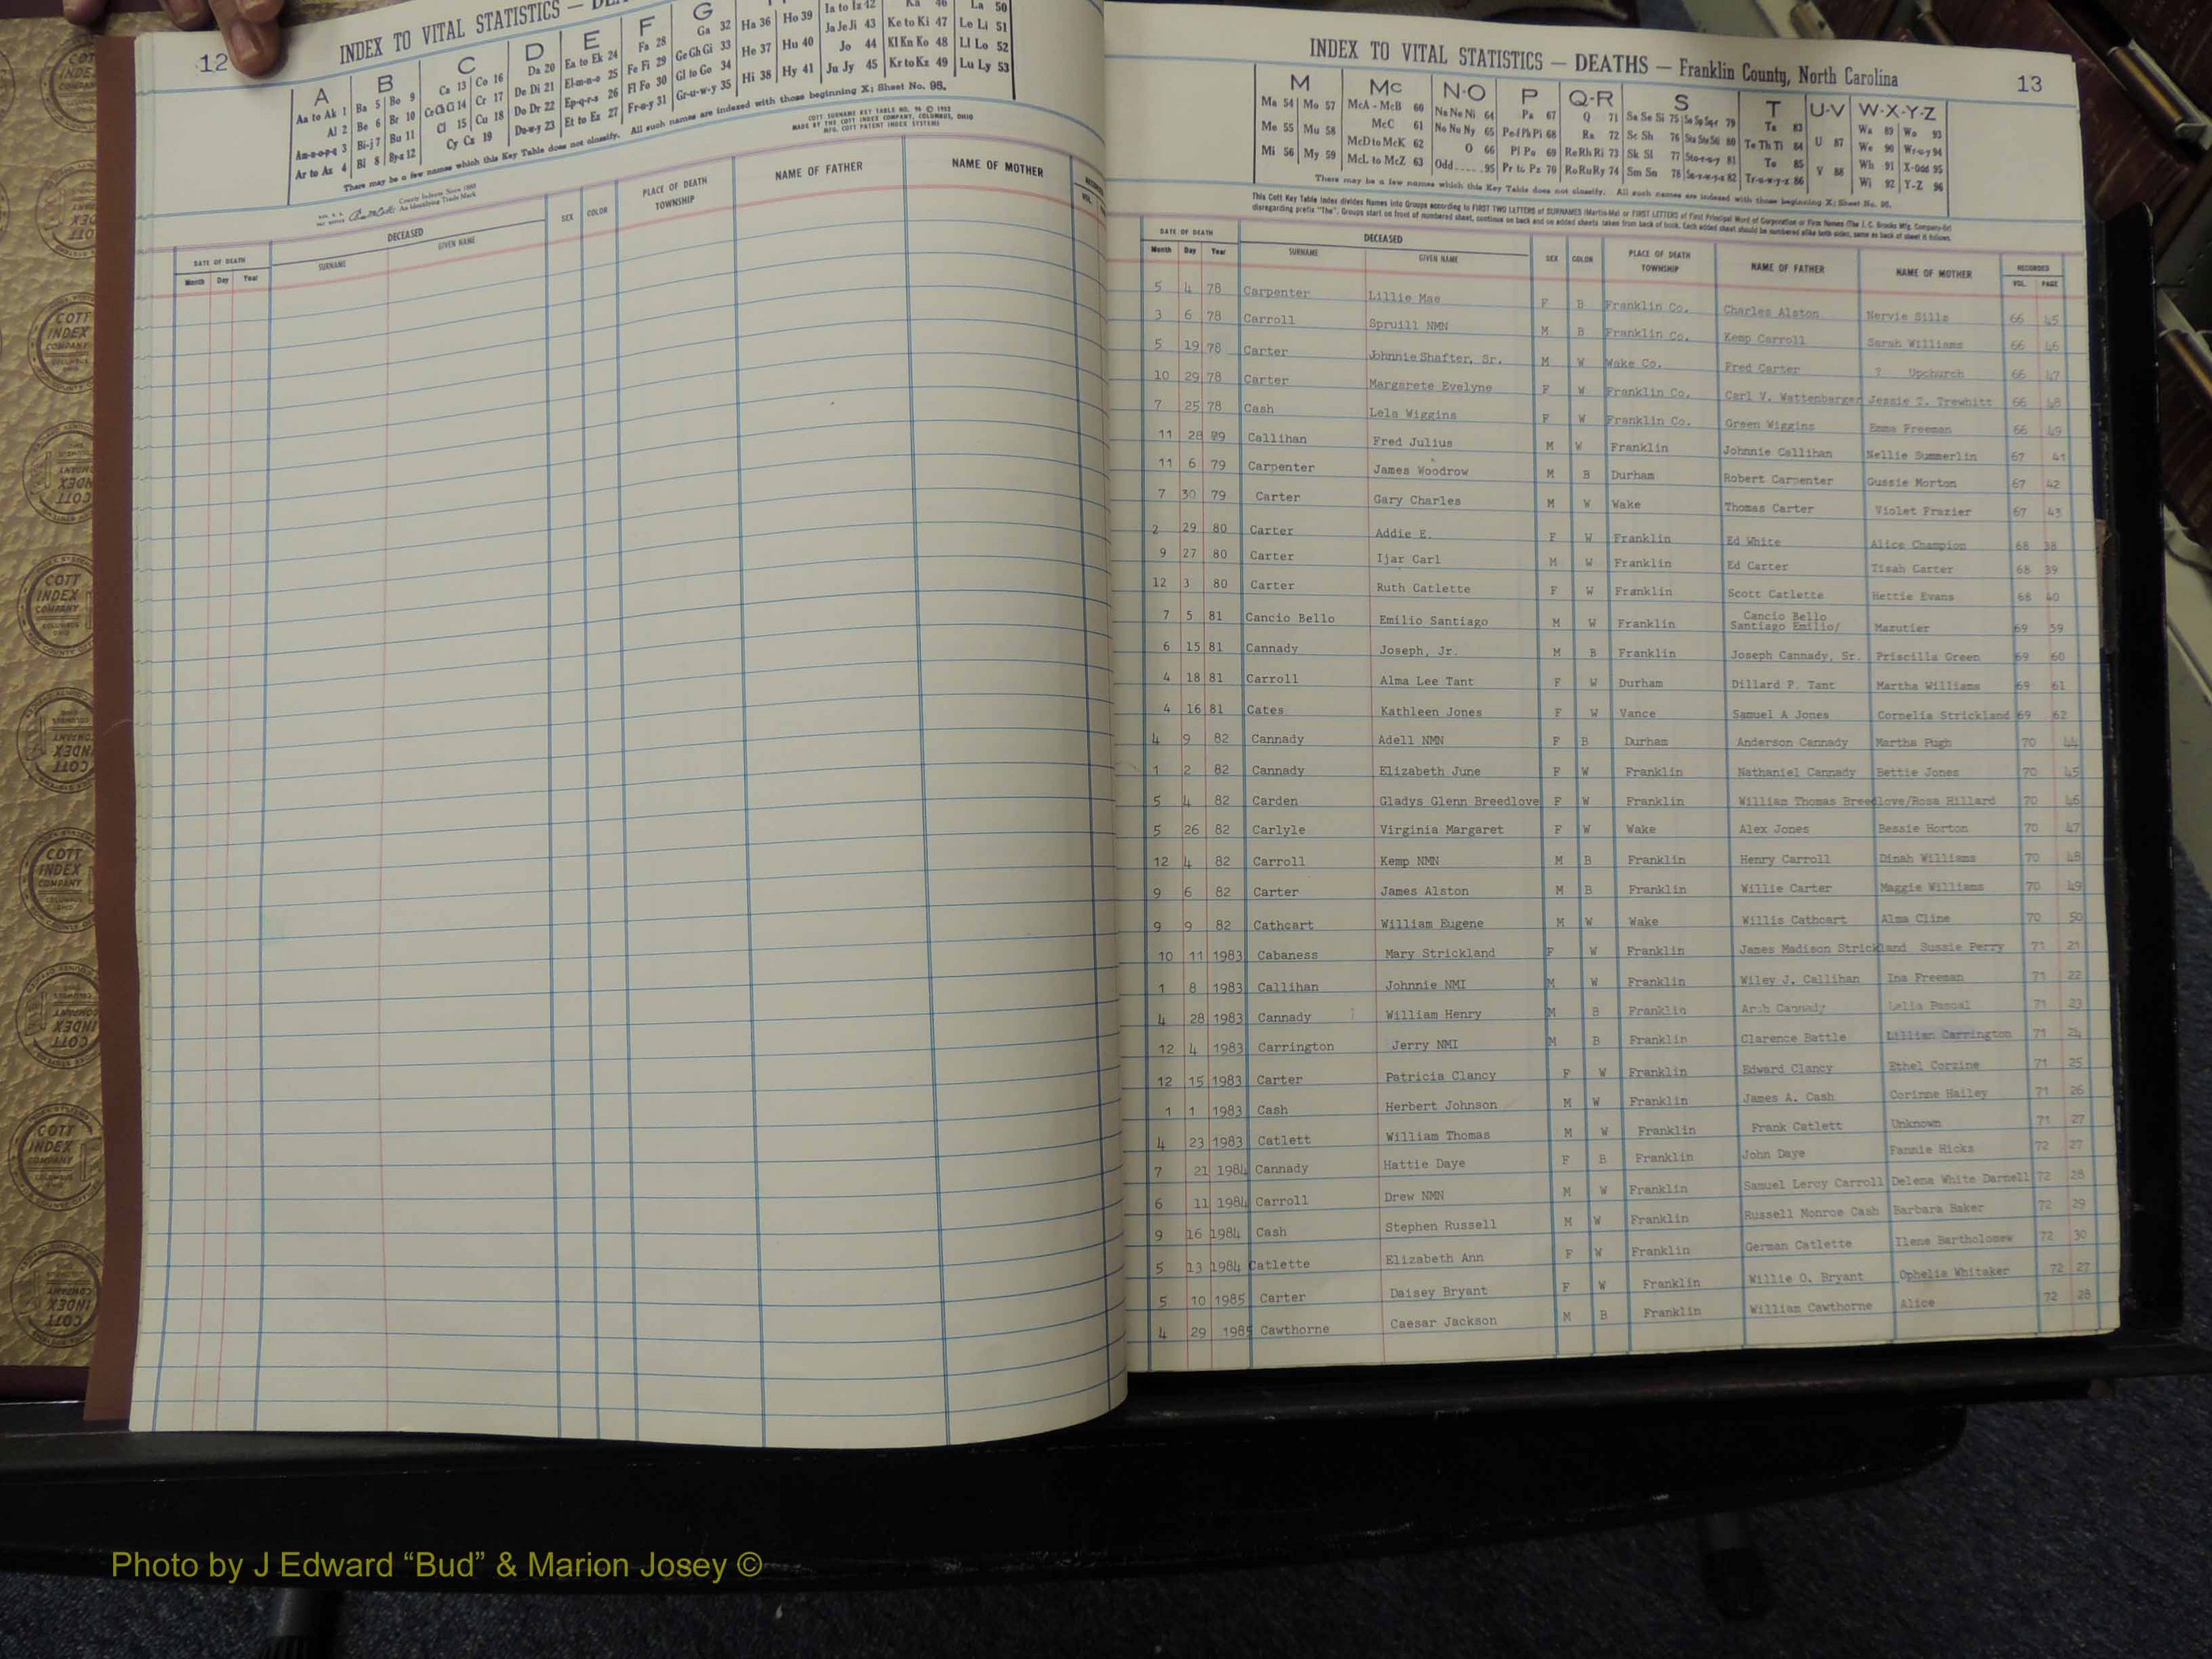 12
INDEX TO VITAL STATISTICS —
A B C D E F G
Aa to Ak 1 Ba 5 Bo 9 Ca 13 Co 16 Da 20 Ea to Ek 24 Fa 28 Ga 32 Ha 36 Ho 39 Ia to Iz 42 Ka 46 La 50
Al 2 Be 6 Br 10 Ce Ch Ci 14 Cr 17 De Di 21 El-m-n-o 25 Fe Fi 29 Ge Gh Gi 33 He 37 Hu 40 Ja Je Ji 43 Ke to Ki 47 Le Li 51
Am-n-o-p-q 3 Bi-j 7 Bu 11 Cl 15 Cu 18 Do Dr 22 Ep-q-r-s 26 Fl Fo 30 Gl to Go 34 Hi 38 Hy 41 Jo 44 Kl Kn Ko 48 Ll Lo 52
Ar to Az 4 Bl 8 By-z 12 Cy Cz 19 Du-w-y 23 Et to Ez 27 Fr-u-y 31 Gr-u-w-y 35 Ju Jy 45 Kr to Kz 49 Lu Ly 53
There may be a few names which this Key Table does not classify. All such names are indexed with those beginning X; Sheet No. 95.
COTT SURNAME KEY TABLE NO. 96 ©
MADE BY THE COTT INDEX COMPANY, COLUMBUS, OHIO
MFG. COTT PATENT INDEX SYSTEMS
County Indexes Since 1888
An Identifying Trade Mark
DATE OF DEATH DECEASED SEX COLOR PLACE OF DEATH NAME OF FATHER NAME OF MOTHER
Month Day Year SURNAME GIVEN NAME TOWNSHIP
INDEX TO VITAL STATISTICS — DEATHS — Franklin County, North Carolina 13
M Mc N-O P Q-R S T U-V W-X-Y-Z
Ma 54 Mo 57 McA - McB 60 Na Ne Ni 64 Pa 67 Q 71 Sa Se Si 75 79 Ta 83 U 87 Wa 89 Wo 93
Me 55 Mu 58 McC 61 No Nu Ny 65 Pe-f Ph Pi 68 Ra 72 Sc Sh 76 80 Te Th Ti 84 V 88 We 90 Wr-u-y 94
Mi 56 My 59 McD to McK 62 O 66 Pl Po 69 Re Rh Ri 73 Sk Sl 77 81 To 85 Wh 91 X-Odd 95
McL to McZ 63 Odd.....95 Pr to Pz 70 Ro Ru Ry 74 Sm Sn 78 82 Tr-u-w-y-z 86 Wi 92 Y-Z 96
There may be a few names which this Key Table does not classify. All such names are indexed with those beginning X; Sheet No. 95.
This Cott Key Table Index divides Names into Groups according to FIRST TWO LETTERS of SURNAMES (Martin-Ma) or FIRST LETTERS of First Principal Word of Corporation or Firm Names (The J. C. Brooks Mfg. Company-Br)
disregarding prefix "The". Groups start on front of numbered sheet, continue on back and on added sheets taken from back of book. Each added sheet should be numbered alike both sides, same as back of sheet it follows.
DATE OF DEATH DECEASED SEX COLOR PLACE OF DEATH NAME OF FATHER NAME OF MOTHER RECORDED
Month Day Year SURNAME GIVEN NAME TOWNSHIP VOL. PAGE
5 4 78 Carpenter Lillie Mae F B Franklin Co. Charles Alston Nervie Sills 66 45
3 6 78 Carroll Spruill NMN M B Franklin Co. Kemp Carroll Sarah Williams 66 46
5 19 78 Carter Johnnie Shafter, Sr. M W Wake Co. Fred Carter ? Upchurch 66 47
10 29 78 Carter Margarete Evelyne F W Franklin Co. Carl V. Wattenbarger Jessie T. Trewhitt 66 48
7 25 78 Cash Lela Wiggins F W Franklin Co. Green Wiggins Emma Freeman 66 49
11 28 79 Callihan Fred Julius M W Franklin Johnnie Callihan Nellie Summerlin 67 41
11 6 79 Carpenter James Woodrow M B Durham Robert Carpenter Gussie Morton 67 42
7 30 79 Carter Gary Charles M W Wake Thomas Carter Violet Frazier 67 43
2 29 80 Carter Addie E. F W Franklin Ed White Alice Champion 68 38
9 27 80 Carter Ijar Carl M W Franklin Ed Carter Tisah Carter 68 39
12 3 80 Carter Ruth Catlette F W Franklin Scott Catlette Hettie Evans 68 40
7 5 81 Cancio Bello Emilio Santiago M W Franklin Cancio Bello Santiago Emilio/ Mazutier 69 59
6 15 81 Cannady Joseph, Jr. M B Franklin Joseph Cannady, Sr. Priscilla Green 69 60
4 18 81 Carroll Alma Lee Tant F W Durham Dillard P. Tant Martha Williams 69 61
4 16 81 Cates Kathleen Jones F W Vance Samuel A Jones Cornelia Strickland 69 62
4 9 82 Cannady Adell NMN F B Durham Anderson Cannady Martha Pugh 70 44
1 2 82 Cannady Elizabeth June F W Franklin Nathaniel Cannady Bettie Jones 70 45
5 4 82 Carden Gladys Glenn Breedlove F W Franklin William Thomas Breedlove/Rosa Hillard 70 46
5 26 82 Carlyle Virginia Margaret F W Wake Alex Jones Bessie Horton 70 47
12 4 82 Carroll Kemp NMN M B Franklin Henry Carroll Dinah Williams 70 48
9 6 82 Carter James Alston M B Franklin Willie Carter Maggie Williams 70 49
9 9 82 Cathcart William Eugene M W Wake Willis Cathcart Alma Cline 70 50
10 11 1983 Cabaness Mary Strickland F W Franklin James Madison Strickland Sussie Perry 71 21
1 8 1983 Callihan Johnnie NMI M W Franklin Wiley J. Callihan Ina Freeman 71 22
4 28 1983 Cannady William Henry M B Franklin Arch Cannady Lelia Pascal 71 23
12 4 1983 Carrington Jerry NMI M B Franklin Clarence Battle Lillian Carrington 71 24
12 15 1983 Carter Patricia Clancy F W Franklin Edward Clancy Ethel Corzine 71 25
1 1 1983 Cash Herbert Johnson M W Franklin James A. Cash Corinne Hailey 71 26
4 23 1983 Catlett William Thomas M W Franklin Frank Catlett Unknown 71 27
7 21 1984 Cannady Hattie Daye F B Franklin John Daye Fannie Hicks 72 27
6 11 1984 Carroll Drew NMN M W Franklin Samuel Leroy Carroll Delena White Darnell 72 28
9 16 1984 Cash Stephen Russell M W Franklin Russell Monroe Cash Barbara Baker 72 29
5 13 1984 Catlette Elizabeth Ann F W Franklin German Catlette Ilene Bartholomew 72 30
5 10 1985 Carter Daisey Bryant F W Franklin Willie O. Bryant Ophelia Whitaker 72 27
4 29 1985 Cawthorne Caesar Jackson M B Franklin William Cawthorne Alice 72 28
COTT INDEX COMPANY COLUMBUS OHIO
Photo by J Edward “Bud” & Marion Josey ©